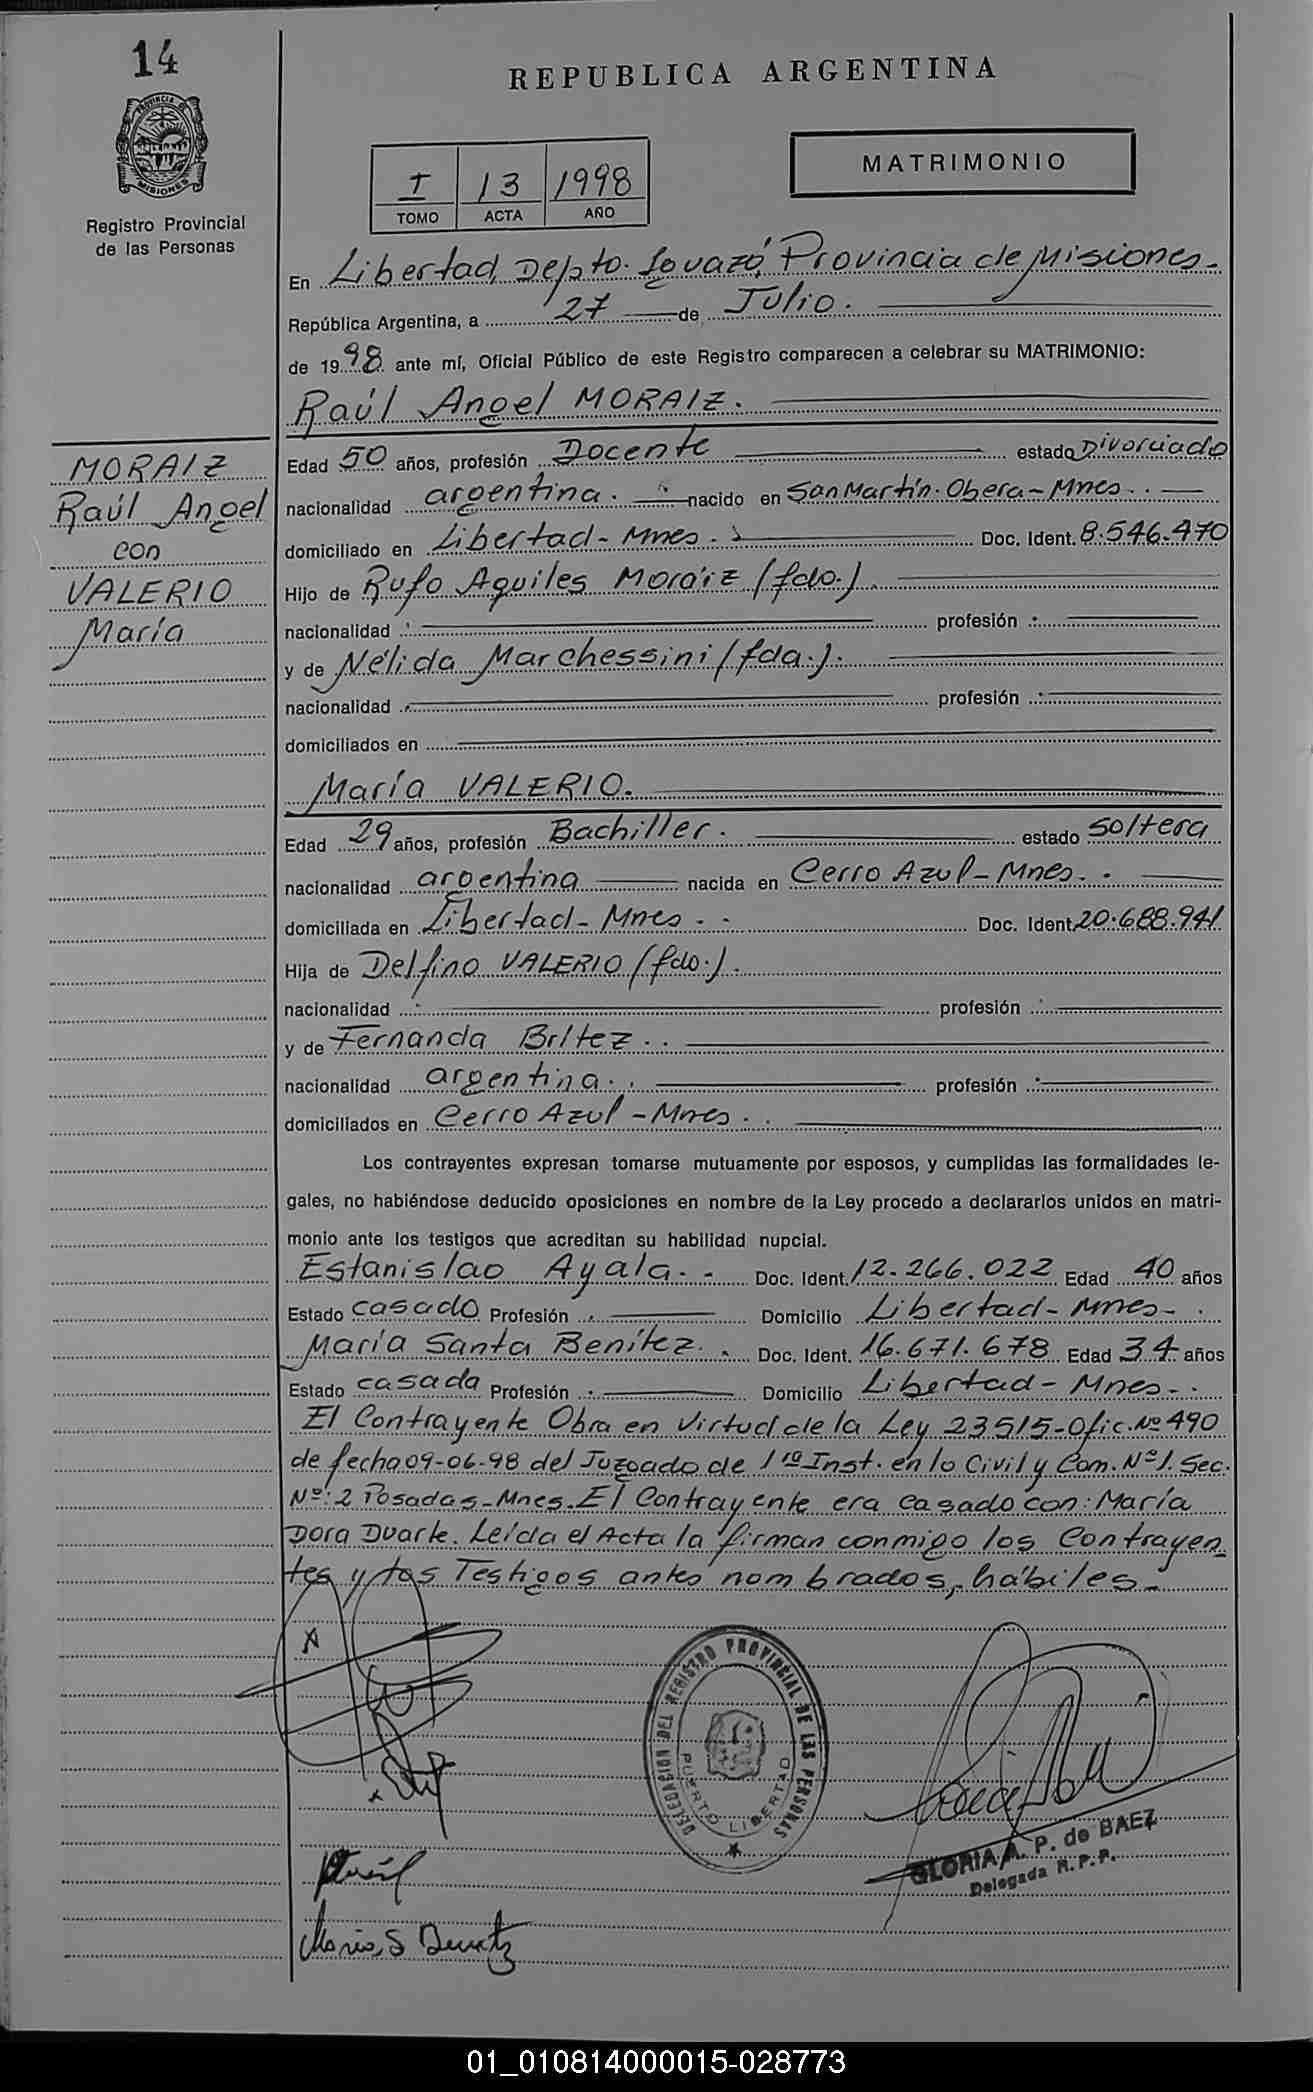 14
PROVINCIA DE
MISIONES
Registro Provincial
de las Personas
REPUBLICA ARGENTINA
MATRIMONIO
I 13 1998
TOMO ACTA AÑO
En Libertad, Depto. Iguazú, Provincia de Misiones.
República Argentina, a 27 de Julio.
de 1998 ante mí, Oficial Público de este Registro comparecen a celebrar su MATRIMONIO:
Raúl Angel MORAIZ.
MORAIZ
Raúl Angel
con
VALERIO
María
Edad 50 años, profesión Docente estado Divorciado
nacionalidad argentina. nacido en San Martín. Obera - Mnes.
domiciliado en Libertad - Mnes. Doc. Ident. 8.546.470
Hijo de Rufo Aquiles Moraiz (fdo.).
nacionalidad profesión
y de Nélida Marchessini (fda.).
nacionalidad profesión
domiciliados en
María VALERIO.
Edad 29 años, profesión Bachiller. estado soltera
nacionalidad argentina nacida en Cerro Azul - Mnes.
domiciliada en Libertad - Mnes. Doc. Ident. 20.688.941
Hija de Delfino VALERIO (fdo.).
nacionalidad profesión
y de Fernanda Britez.
nacionalidad argentina. profesión
domiciliados en Cerro Azul - Mnes.
Los contrayentes expresan tomarse mutuamente por esposos, y cumplidas las formalidades le-
gales, no habiéndose deducido oposiciones en nombre de la Ley procedo a declararlos unidos en matri-
monio ante los testigos que acreditan su habilidad nupcial.
Estanislao Ayala. Doc. Ident. 12.266.022 Edad 40 años
Estado casado Profesión Domicilio Libertad - Mnes.
María Santa Benítez. Doc. Ident. 16.671.678 Edad 34 años
Estado casada Profesión Domicilio Libertad - Mnes.
El Contrayente Obra en Virtud de la Ley 23515 - Ofic. Nº 490
de fecha 09-06-98 del Juzgado de 1ra Inst. en lo Civil y Com. Nº 1. Sec.
Nº: 2 Posadas - Mnes. El Contrayente era casado con: María
Dora Duarte. Leída el Acta la firman conmigo los Contrayen-
tes y los Testigos antes nombrados, hábiles.
DELEGACION DEL REGISTRO PROVINCIAL DE LAS PERSONAS
PUERTO LIBERTAD
GLORIA A. P. de BAEZ
Delegada R.P.P.
María S Benitz
01_010814000015-028773